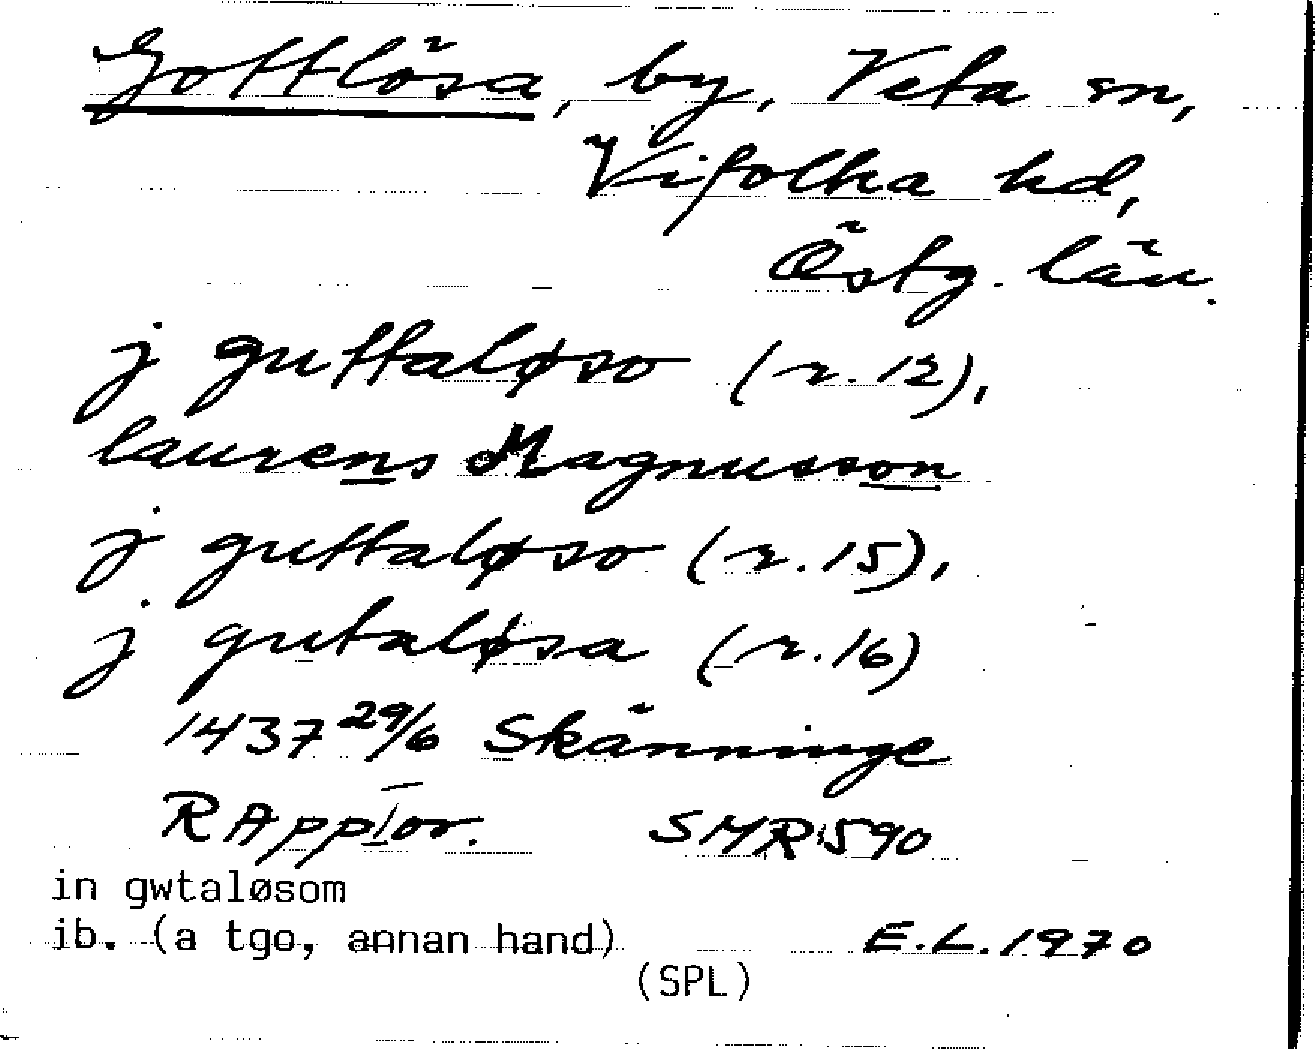 Gottlösa, by, Veta sn,
Vifolka hd,
Östg. län.
j guttaløso (r. 12),
laurens Magnusson
j guttaløso (r. 15),
j gutaløsa (r. 16)
1437 29/6 Skänninge
RAppIor. SMR 590
in gwtaløsom
ib. (a tgo, annan hand) E.L. 1970
(SPL)